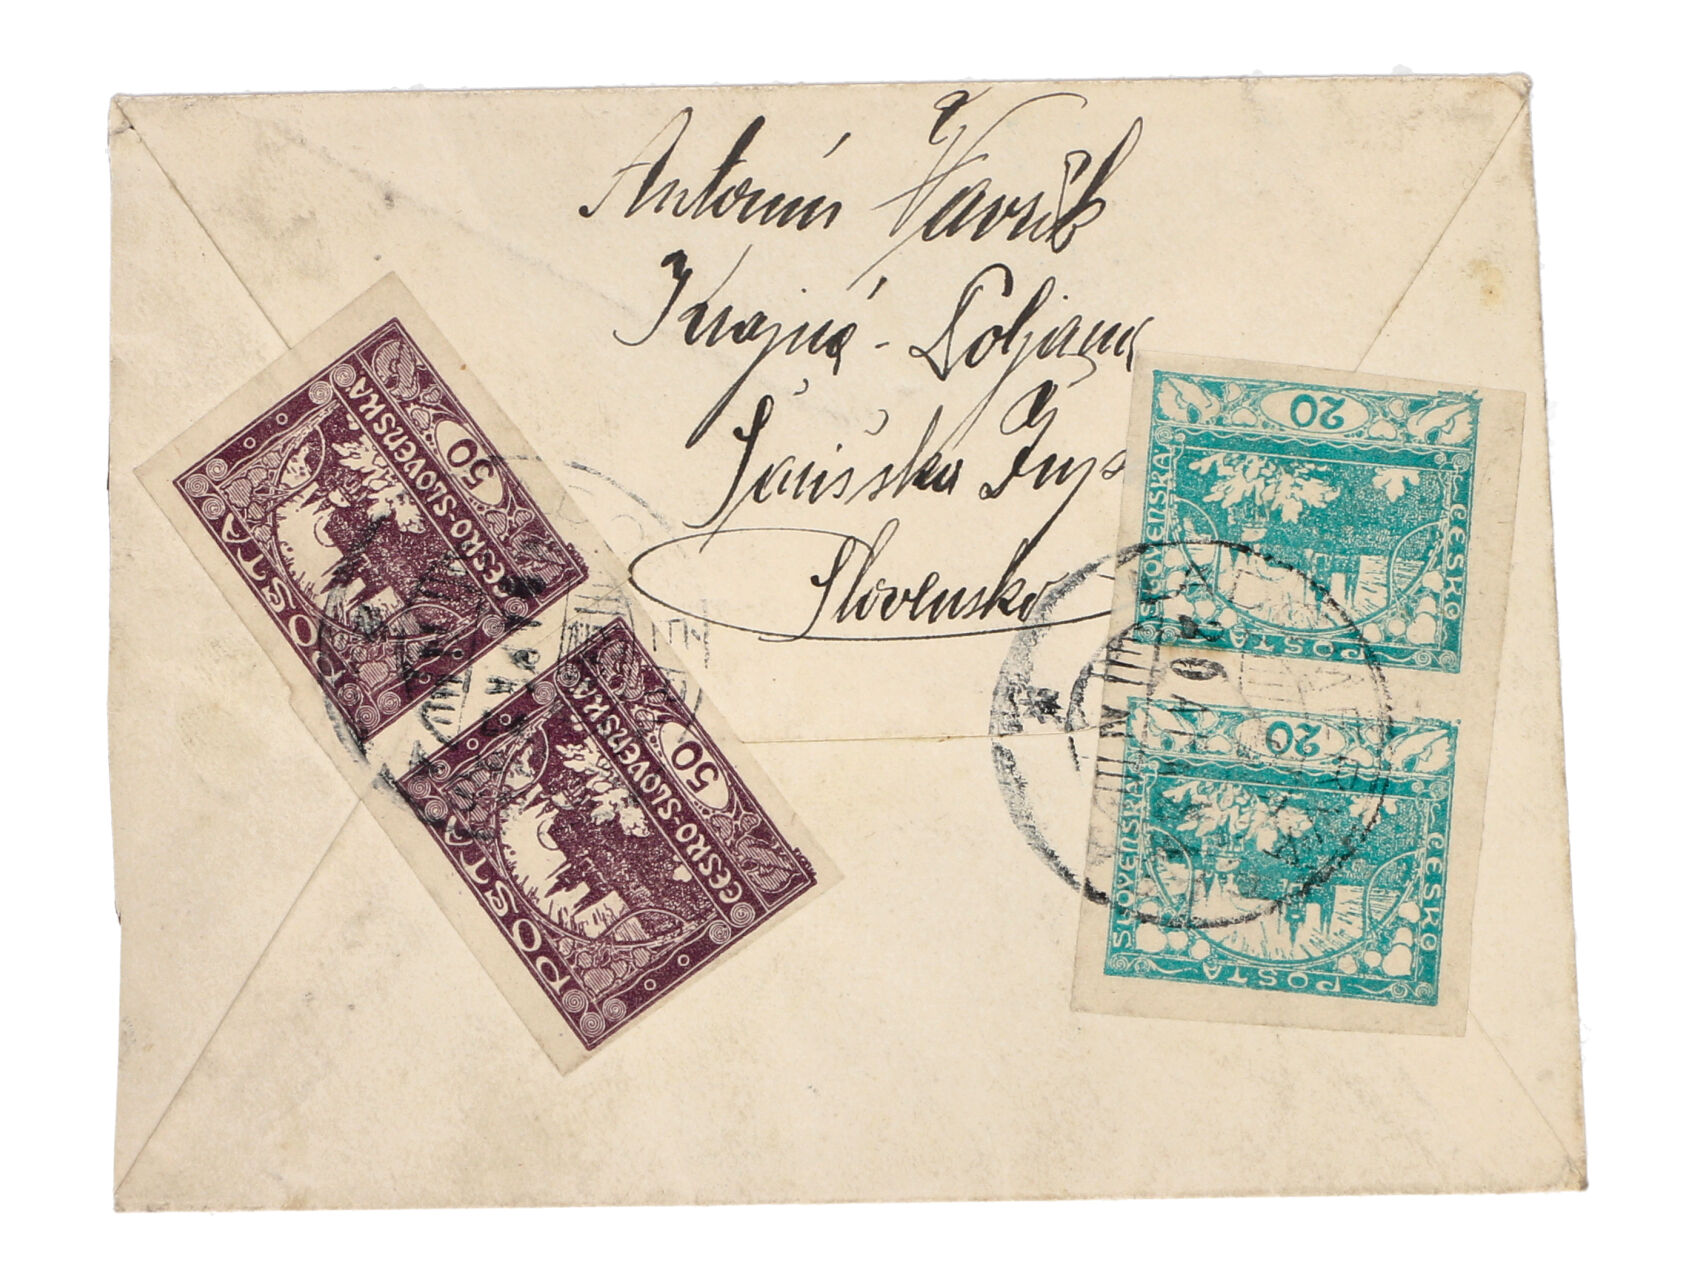 Antonín Vavřík
Krajná - Poljana
Šarišská Žup
Slovensko
50
ČESKO-SLOVENSKÁ
POŠTA
50
ČESKO-SLOVENSKÁ
POŠTA
20
ČESKO
SLOVENSKÁ
POŠTA
20
ČESKO
SLOVENSKÁ
POŠTA